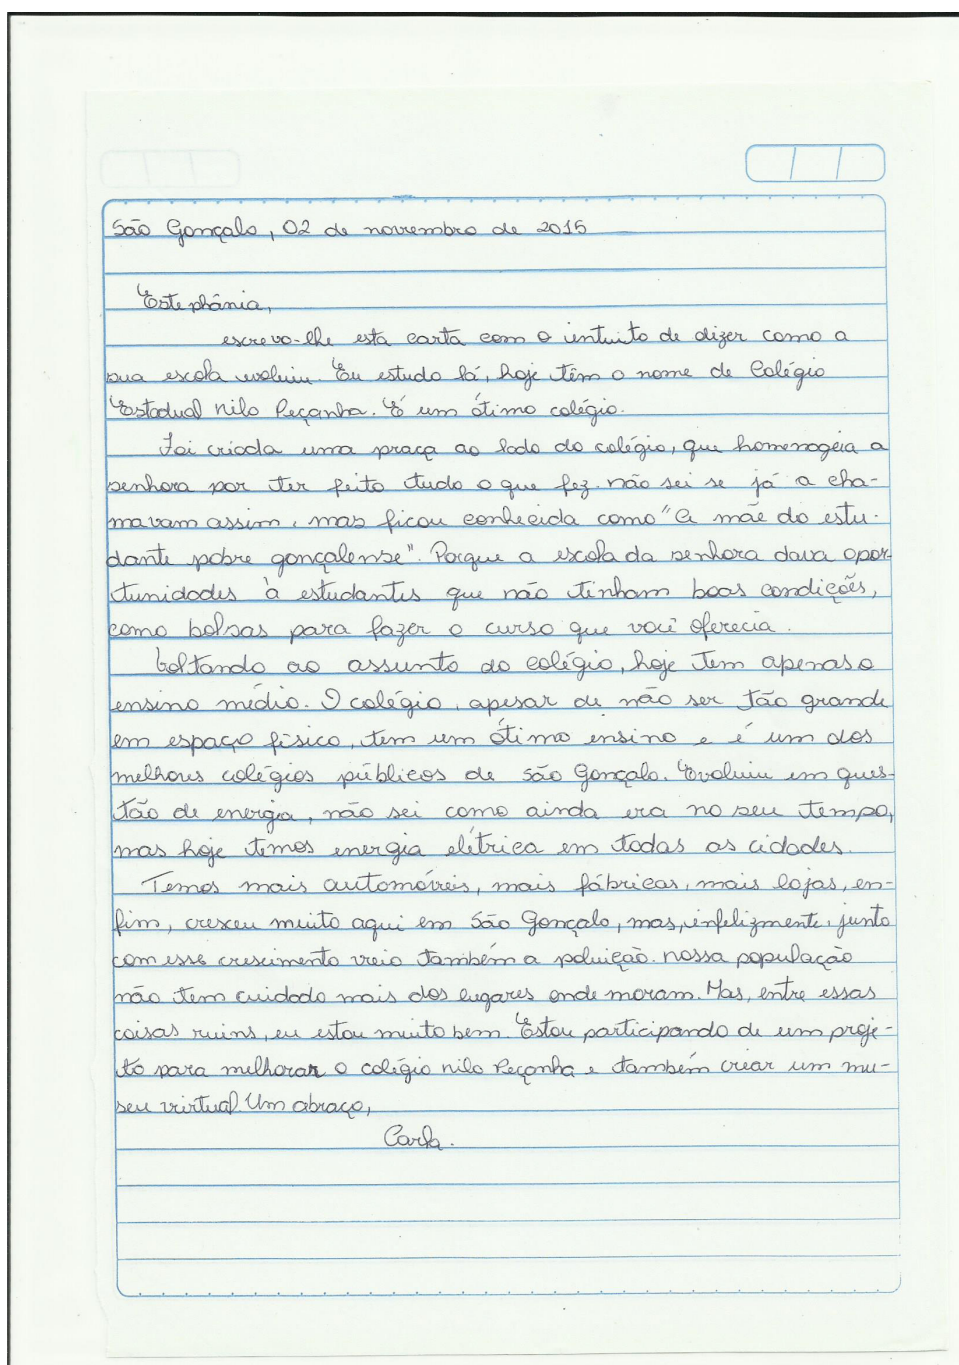 São Gonçalo, 02 de novembro de 2015
Estephânia,
escrevo-lhe esta carta com o intuito de dizer como a
sua escola evoluiu. Eu estudo lá, hoje têm o nome de Colégio
Estadual nilo Peçanha. É um ótimo colégio.
Foi criada uma praça ao lado do colégio, que homenageia a
senhora por ter feito tudo o que fez. não sei se já a cha-
mavam assim, mas ficou conhecida como "A mãe do estu-
dante pobre gonçalense". Porque a escola da senhora dava opor-
tunidades à estudantes que não tinham boas condições,
como bolsas para fazer o curso que você oferecia.
Voltando ao assunto do colégio, hoje tem apenas o
ensino médio. O colégio, apesar de não ser tão grande
em espaço físico, tem um ótimo ensino e é um dos
melhores colégios públicos de São Gonçalo. Evoluiu em ques-
tão de energia, não sei como ainda era no seu tempo,
mas hoje temos energia elétrica em todas as cidades.
Temos mais automóveis, mais fábricas, mais lojas, en-
fim, cresceu muito aqui em São Gonçalo, mas, infelizmente, junto
com esse crescimento veio também a poluição. nossa população
não tem cuidado mais dos lugares onde moram. Mas, entre essas
coisas ruins, eu estou muito bem. Estou participando de um proje-
to para melhorar o colégio nilo Peçanha e também criar um mu-
seu virtual. Um abraço,
Carla.